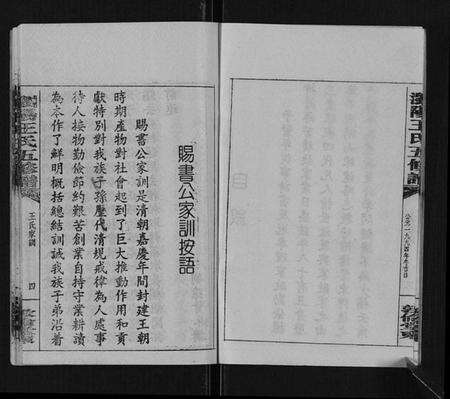 瀏陽王氏五修譜
賜書公家訓按語
賜書公家訓是清朝嘉慶年間封建王朝
時期產物對社會起到了巨大推動作用和貢
獻特別對我族子孫歷代清規戒律為人處事
待人接物勤儉節約艱苦創業自持守業耕讀
為本作了鮮明概括總結訓誡我族子弟沿着
瀏陽王氏五修譜
王氏家訓
四